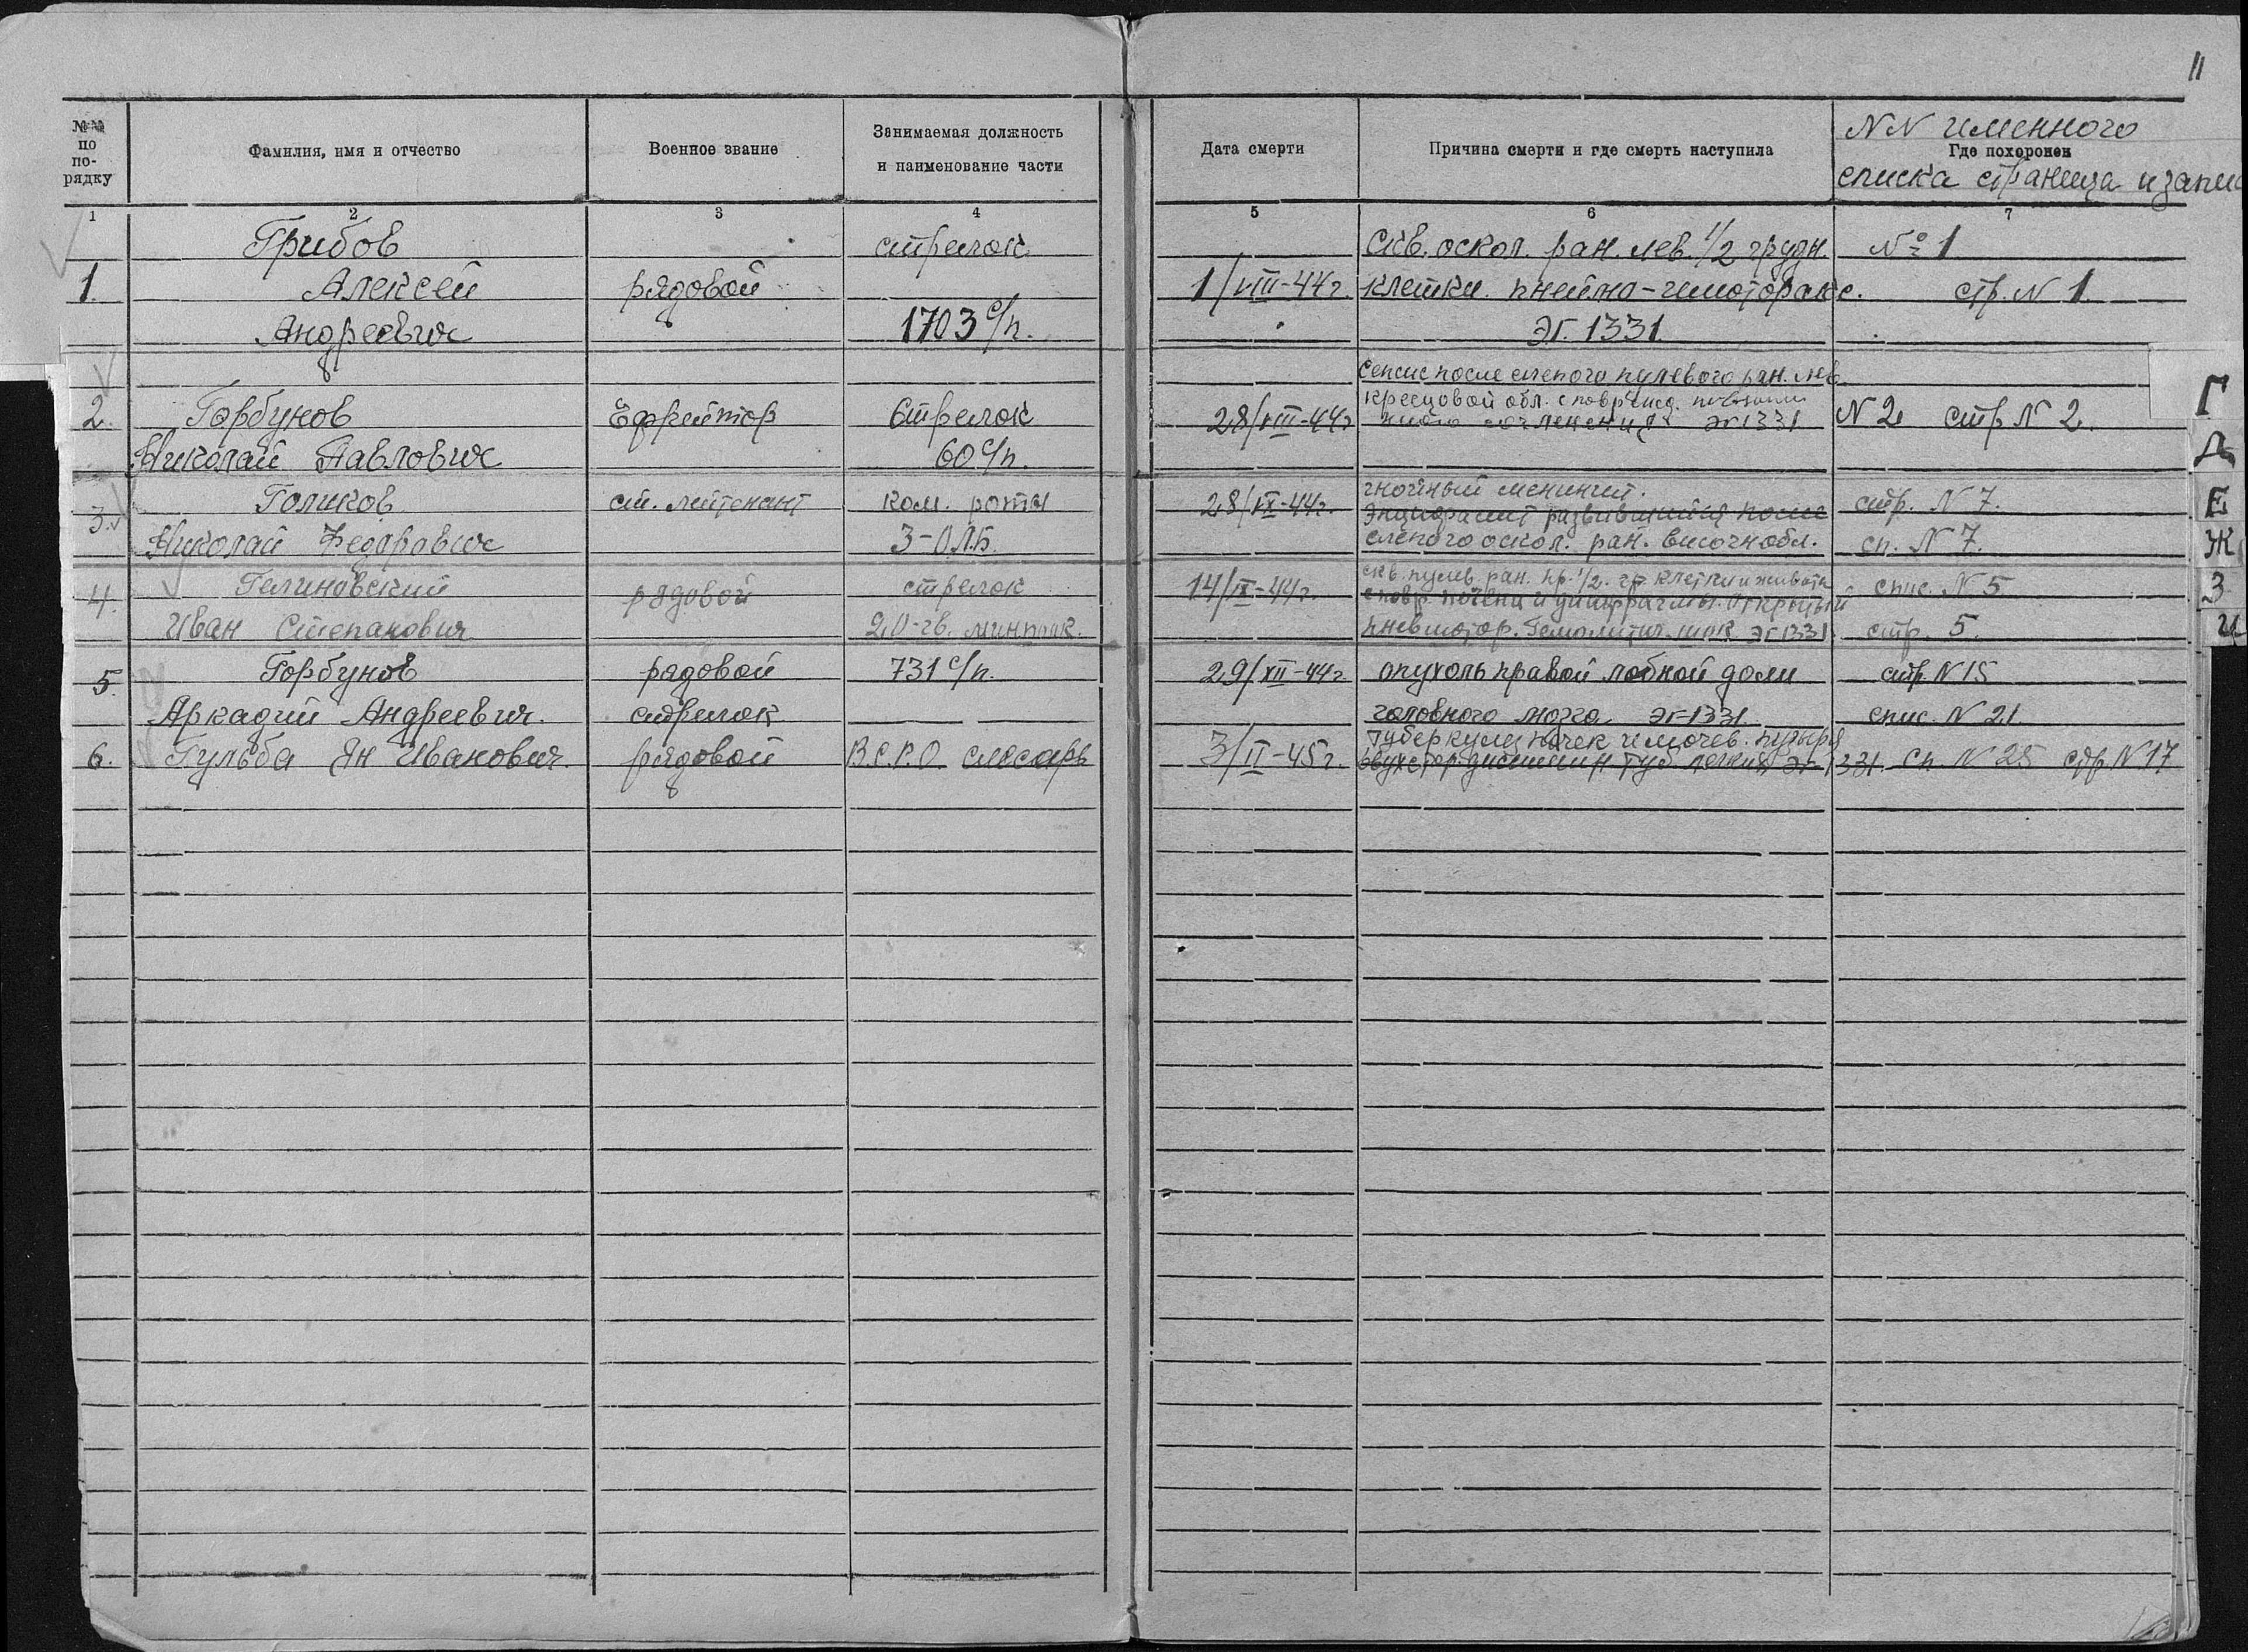 11
№№ по по-рядку
Фамилия, имя и отчество
Военное звание
Занимаемая должность и наименование части
Дата смерти
Причина смерти и где смерть наступила
NN именного
Где похоронен
списка страница и запис
1 2 3 4 5 6 7
Грибов стрелок Скв. оскол. ран. лев. 1/2 грудн. № 1
1. Алексей рядовой 1/VIII-44г. клетки. пнеймо-гимоторакс. стр. N 1.
Андреевич 1703 с/п. ЭГ. 1331.
Сепсис после слепого пулевого ран. лев.
крестцовой обл. с повр
2. Горбунов Ефрейтор Стрелок 28/VIII-44г сочленения ЭГ 1331 N 2 стр N 2.
Николай Павлович 60 с/п.
гнойный менингит.
3. Голиков ст. лейтенант ком. роты 28/IX-44г. Энцефалит развившийся после стр. N 7.
Николай Федорович 3-ОЛБ. слепого оскол. ран. височн обл. сп. N 7.
скв. пулев. ран. пр. 1/2. гр. клетки и живота
4. Гелиновский рядовой стрелок 14/IX-44г. с повр. печени и диафрагмы. Открытый спис. N 5
Иван Степанович 20-гв. минполк. пневмотор. шок ЭГ 1331 стр. 5.
5. Горбунов рядовой 731 с/п. 29/XII-44г. опухоль правой лобной доли стр N 15
Аркадий Андреевич. стрелок головного мозга ЭГ-1331 спис. N 21.
Туберкулез почек и мочев. пузыря
6. Гульба Ян Иванович рядовой В.С.Р.О слесарь 3/II-45г. двухстор. туб легких ЭГ-1331. сп. N 25 стр N 17
Г
Д
Е
Ж
З
И